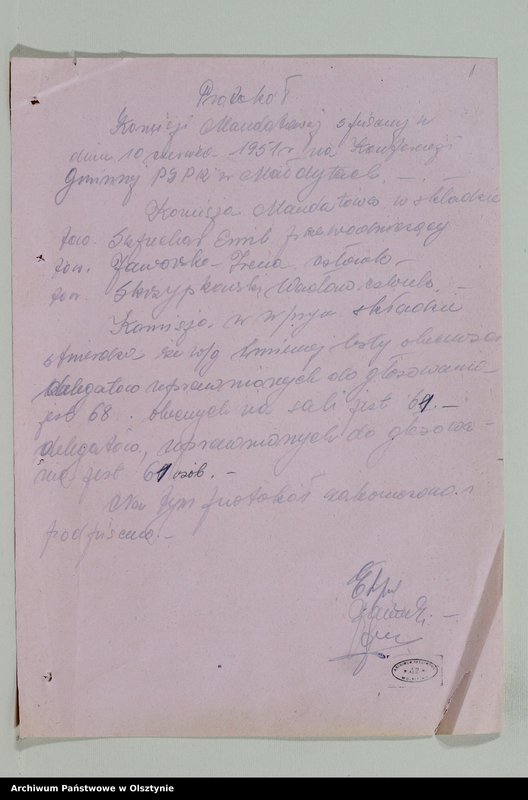 1
Protokół
Komisji Mandatowej spisany w
dniu 10 czerwca 1951 r na Konferencji
Gminnej PZPR w Małdytach. –
Komisja Mandatowa w składzie
tow. Emil przewodniczący
tow. Jaworska Irena członek –
tow. Skrzypkowski Wacław członek. –
Komisja w w/wym składzie
stwierdza że w/g imiennej listy obecności
delegatów uprawnionych do głosowania
jest 68. obecnych na sali jest 61. –
delegatów, uprawnionych do głosowa-
nia jest 61 osób. –
Na tym protokół zakończono i
podpisano. –
42
Archiwum Państwowe w Olsztynie